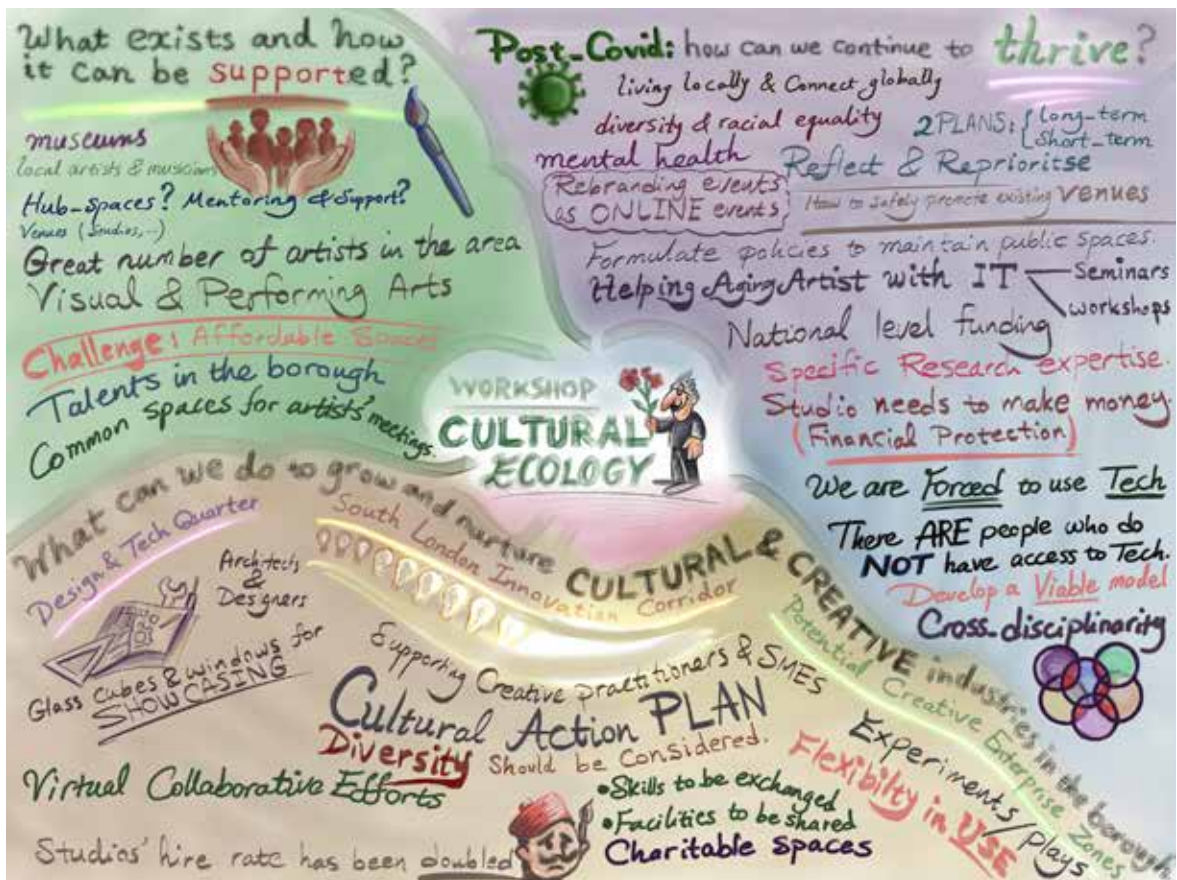 What exists and how
it can be supported?
museums
local artists & musicians
Hub-spaces? Mentoring & Support?
Venues (Studios,...)
Great number of artists in the area
Visual & Performing Arts
Challenge: Affordable Space
Talents in the borough
Common spaces for artists' meetings.
Post-Covid: how can we continue to thrive?
living locally & Connect globally
diversity & racial equality
2 PLANS: { long-term
short-term
mental health
Reflect & Reprioritse
Rebranding events
as ONLINE events
How to safely promote existing venues
Formulate policies to maintain public spaces.
Helping Aging Artist with IT
Seminars
workshops
National level funding
Specific Research expertise.
Studio needs to make money.
(Financial Protection)
We are Forced to use Tech
There ARE people who do
NOT have access to Tech.
Develop a Viable model
Cross-disciplinarity
WORKSHOP
CULTURAL
ECOLOGY
What can we do to grow and nurture CULTURAL & CREATIVE industries in the borough
Design & Tech Quarter
Architects
&
Designers
Glass cubes & windows for
SHOWCASING
South London Innovation Corridor
Supporting Creative practitioners & SMES
Cultural Action PLAN
Diversity Should be Considered.
Virtual Collaborative Efforts
•Skills to be exchanged
•Facilities to be shared
Charitable Spaces
Studios' hire rate has been doubled
Potential Creative Enterprise Zones
Experiments/Plays
Flexibilty in USE